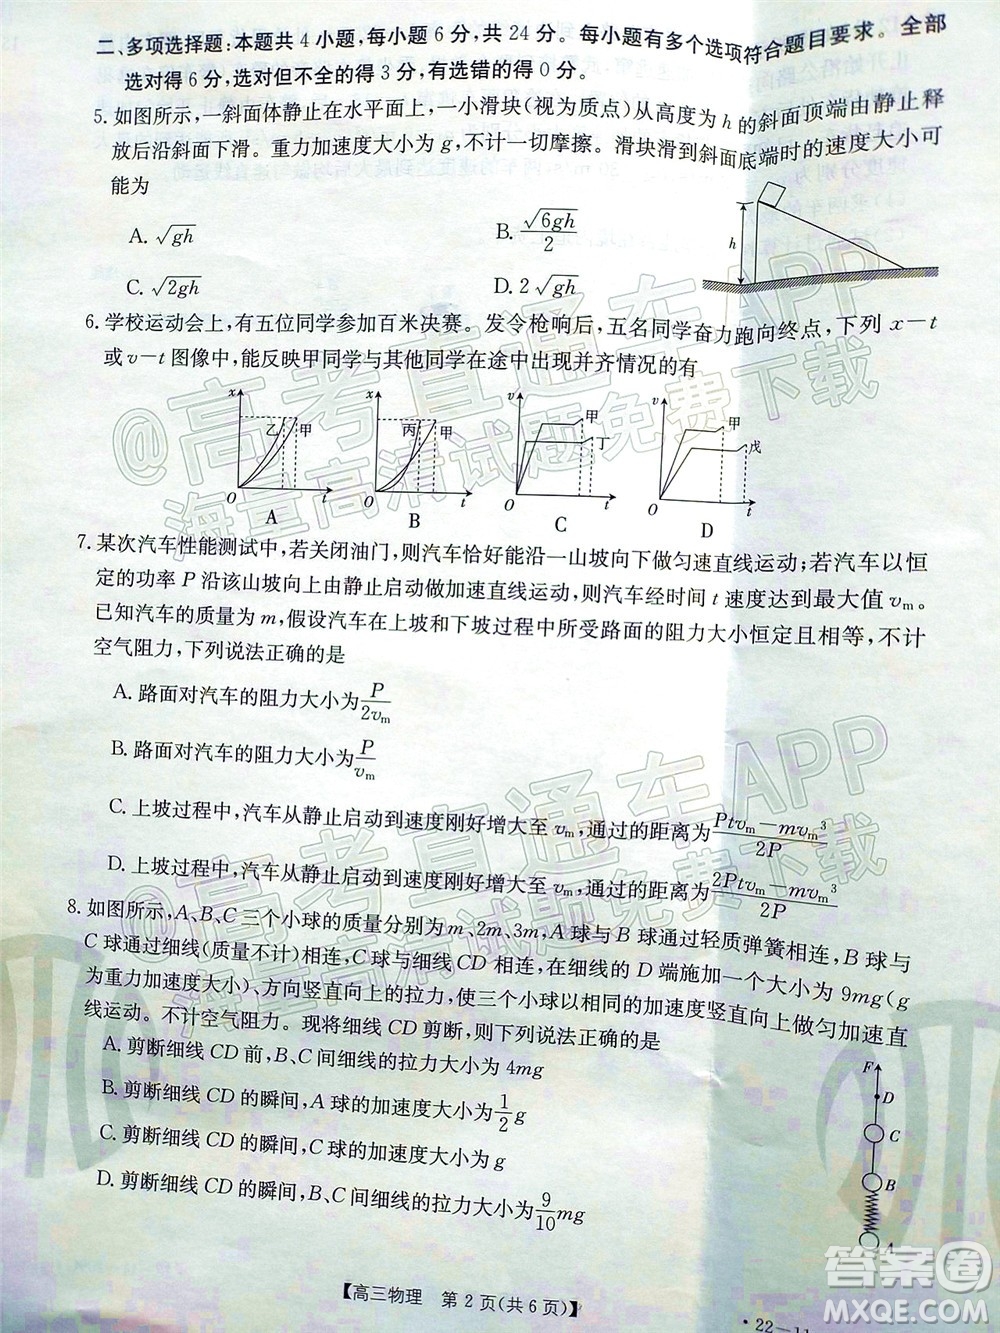 二、多项选择题:本题共 4 小题,每小题 6 分,共 24 分。每小题有多个选项符合题目要求。全部
选对得 6 分,选对但不全的得 3 分,有选错的得 0 分。
5. 如图所示,一斜面体静止在水平面上,一小滑块(视为质点)从高度为 h 的斜面顶端由静止释
放后沿斜面下滑。重力加速度大小为 g,不计一切摩擦。滑块滑到斜面底端时的速度大小可
能为
A. √gh
B. √6gh/2
C. √2gh
D. 2√gh
h
6. 学校运动会上,有五位同学参加百米决赛。发令枪响后,五名同学奋力跑向终点,下列 x-t
或 v-t 图像中,能反映甲同学与其他同学在途中出现并齐情况的有
x 乙 甲 O t A
x 丙 甲 O t B
v 甲 丁 O t C
v 甲 戊 O t D
7. 某次汽车性能测试中,若关闭油门,则汽车恰好能沿一山坡向下做匀速直线运动;若汽车以恒
定的功率 P 沿该山坡向上由静止启动做加速直线运动,则汽车经时间 t 速度达到最大值 vₘ。
已知汽车的质量为 m,假设汽车在上坡和下坡过程中所受路面的阻力大小恒定且相等,不计
空气阻力,下列说法正确的是
A. 路面对汽车的阻力大小为 P/2vₘ
B. 路面对汽车的阻力大小为 P/vₘ
C. 上坡过程中,汽车从静止启动到速度刚好增大至 vₘ,通过的距离为 (Ptvₘ-mvₘ³)/2P
D. 上坡过程中,汽车从静止启动到速度刚好增大至 vₘ,通过的距离为 (2Ptvₘ-mvₘ³)/2P
8. 如图所示,A、B、C 三个小球的质量分别为 m、2m、3m,A 球与 B 球通过轻质弹簧相连,B 球与
C 球通过细线(质量不计)相连,C 球与细线 CD 相连,在细线的 D 端施加一大小为 9mg(g
为重力加速度大小)、方向竖直向上的拉力,使三个小球以相同的加速度竖直向上做匀加速直
线运动。不计空气阻力。现将细线 CD 剪断,则下列说法正确的是
A. 剪断细线 CD 前,B、C 间细线的拉力大小为 4mg
B. 剪断细线 CD 的瞬间,A 球的加速度大小为 1/2 g
C. 剪断细线 CD 的瞬间,C 球的加速度大小为 g
D. 剪断细线 CD 的瞬间,B、C 间细线的拉力大小为 9/10 mg
F
D
C
B
A
【高三物理 第 2 页(共 6 页)】
·22-11
@高考直通车APP
海量高清试题免费下载
@高考直通车APP
海量高清试题免费下载
答案圈
MXQE.COM